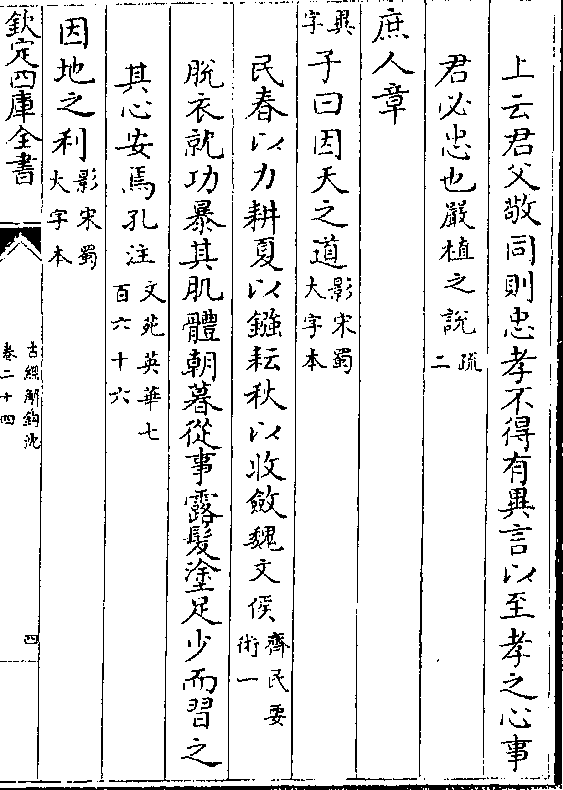 上云君父敬同則忠孝不得有異言以至孝之心事
君必忠也嚴植之説疏二
庶人章
異字子曰因天之道影宋蜀大字本
民春以力耕夏以鏹耘秋以收斂魏文侯齊民要術一
脫衣就功暴其肌體朝暮從事露髮塗足少而習之
其心安焉孔注文苑英華七百六十六
因地之利影宋蜀大字本
欽定四庫全書
古經解鈎沈
卷二十四
四